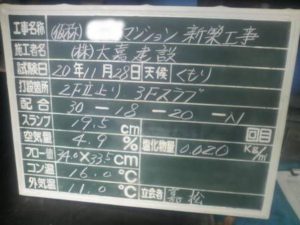 工事名称 (仮称) マンション 新築工事
施工者名 (株)大嘉建設
試験日 20年11月28日 天候 くもり
打設箇所 2F立上り 3Fスラブ
配合 30-18-20-N
スランプ 19.5 cm 回目
空気量 4.9 % 塩化物量 0.020 Kg/m³
フロー値 34.0×33.5 cm
コン温 16.0 ℃
外気温 11.0 ℃ 立会者 嘉松